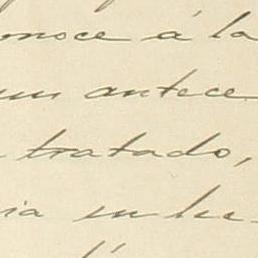 onoce á la
un antece
tratado,
ia in he-